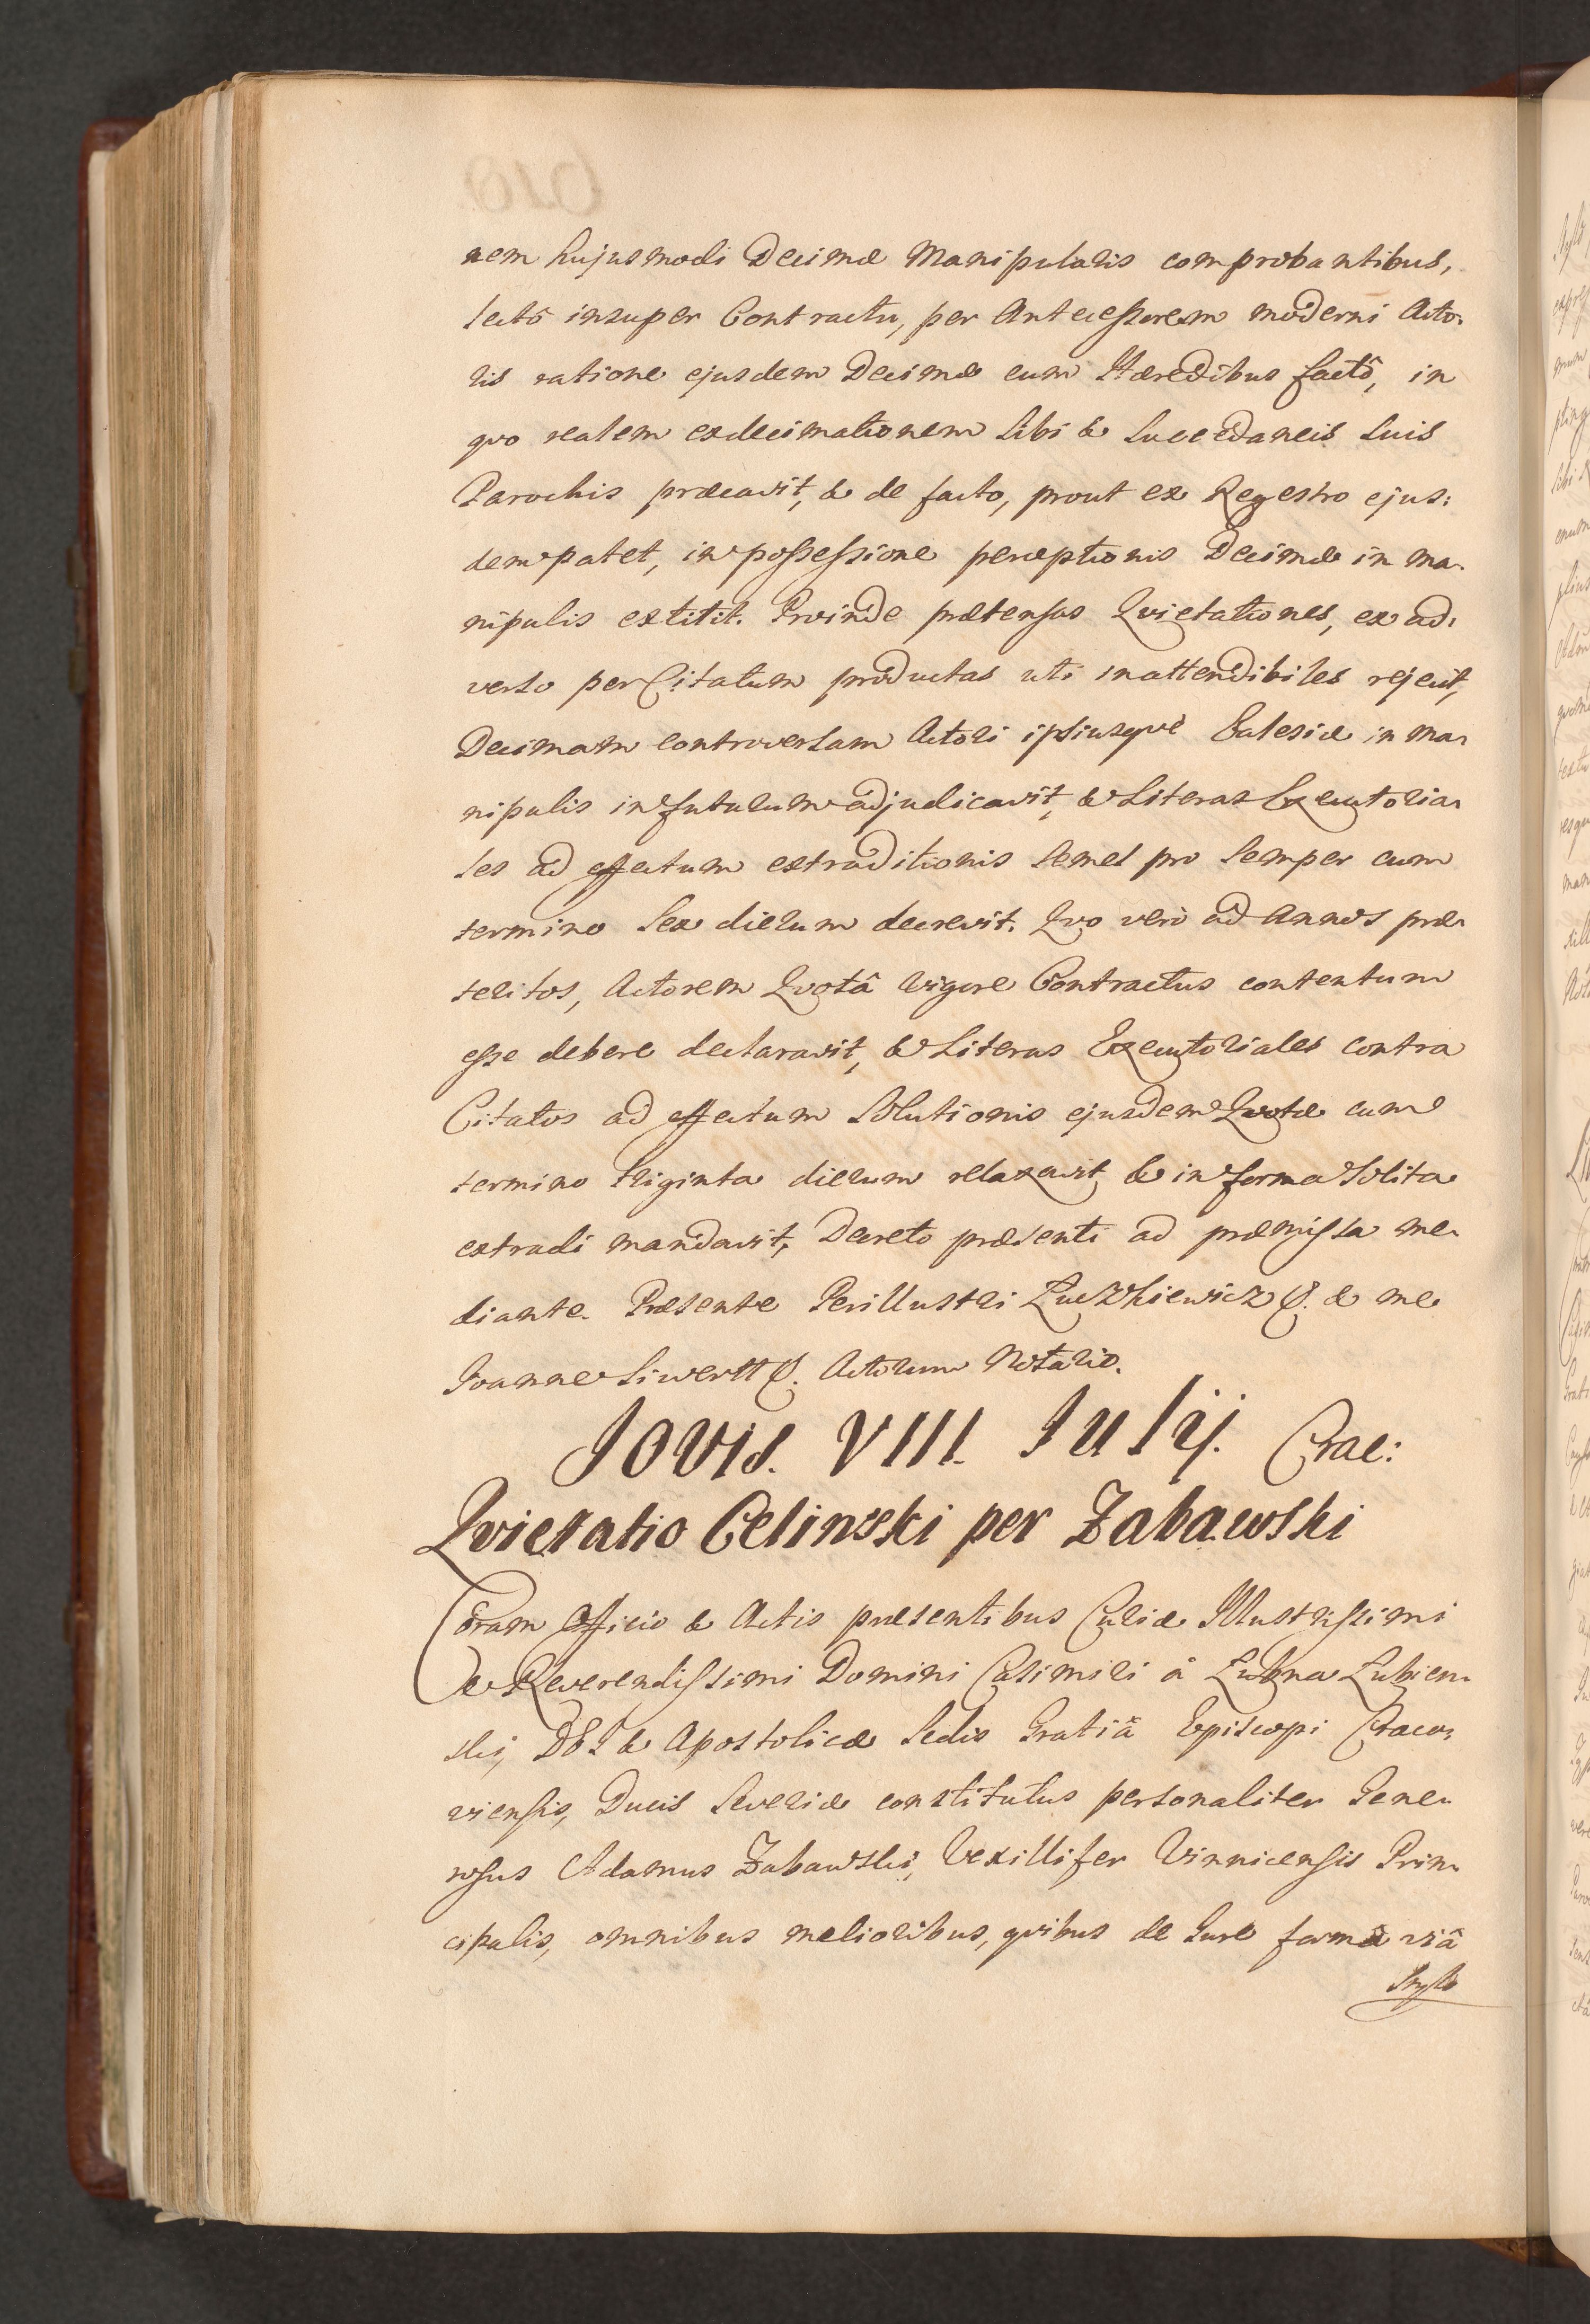 nem hujusmodi Decimæ Manipularis comprobantibus,
lectô insuper Contractu, per Antecessorem moderni Acto-
ris ratione ejusdem Decimæ cum Hæredibus factô, in
qvo realem exdecimationem sibi & succedaneis suis
Parochis præcavit, & de facto, prout ex Regestro ejus:
dem patet, in possessione perceptionis Decimæ in ma-
nipulis extitit. Proinde prætensas Qvietationes, ex ad-
verso per Citatum productas uti inattendibiles rejecit,
Decimam controversam Actori ipsiusqve Ecclesiæ in ma-
nipulis in futurum adjudicavit, & Literas Executoria-
les ad effectum extraditionis semel pro semper cum
termino sex dierum decrevit. Qvo verò ad Annos præ-
teritos, Actorem Qvotâ vigore Contractus contentum
esse debere declaravit, & Literas Executoriales contra
Citatos ad effectum solutionis ejusdem Qvotæ cum
termino triginta dierum relaxavit & in forma solita
extradi mandavit, Decreto præsenti ad præmissa me-
diante. Præsente Perillustri Łuczkiewicz & me
Joanne Siwertt Actorum Notario.
Jovis. VIII. Julij. Crac:
Qvietatio Celinski per Zabawski
Coram Officio & Actis præsentibus Curiæ Illustrissimi
& Reverendissimi Domini Casimiri à Łubna Łubien-
ski, DEI & Apostolicæ Sedis Gratiâ Episcopi Craco-
viensis, Ducis Severiæ constitutus personaliter Gene-
rosus Adamus Zabawski, Vexillifer Vinnicensis Prin-
cipalis, omnibus melioribus, qvibus de Jure formâ viâ
Stylo